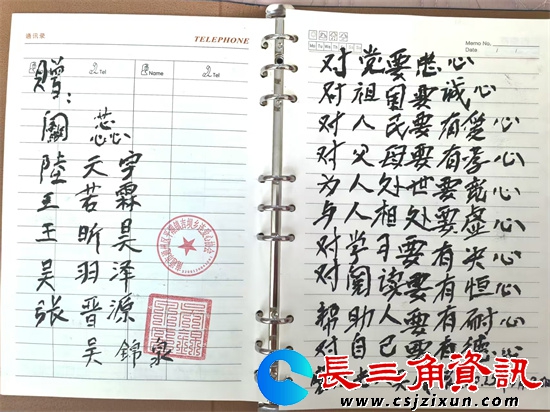 通讯录
TELEPHONE
Tel
Name
Tel
赠：
陸天宇
王若霖
王昕昊
吴羽泽
张晋源
吴錦泉
Memo No.
Mo Tu We Th Fr Sa Su
Date
对党要忠心
对祖国要诚心
对人民要有爱心
对父母要有孝心
为人处世要宽心
与人相处要虚心
对学习要有决心
对阅读要有恒心
帮助人要有耐心
对自己要有德心
長三角資訊
www.csjzixun.com